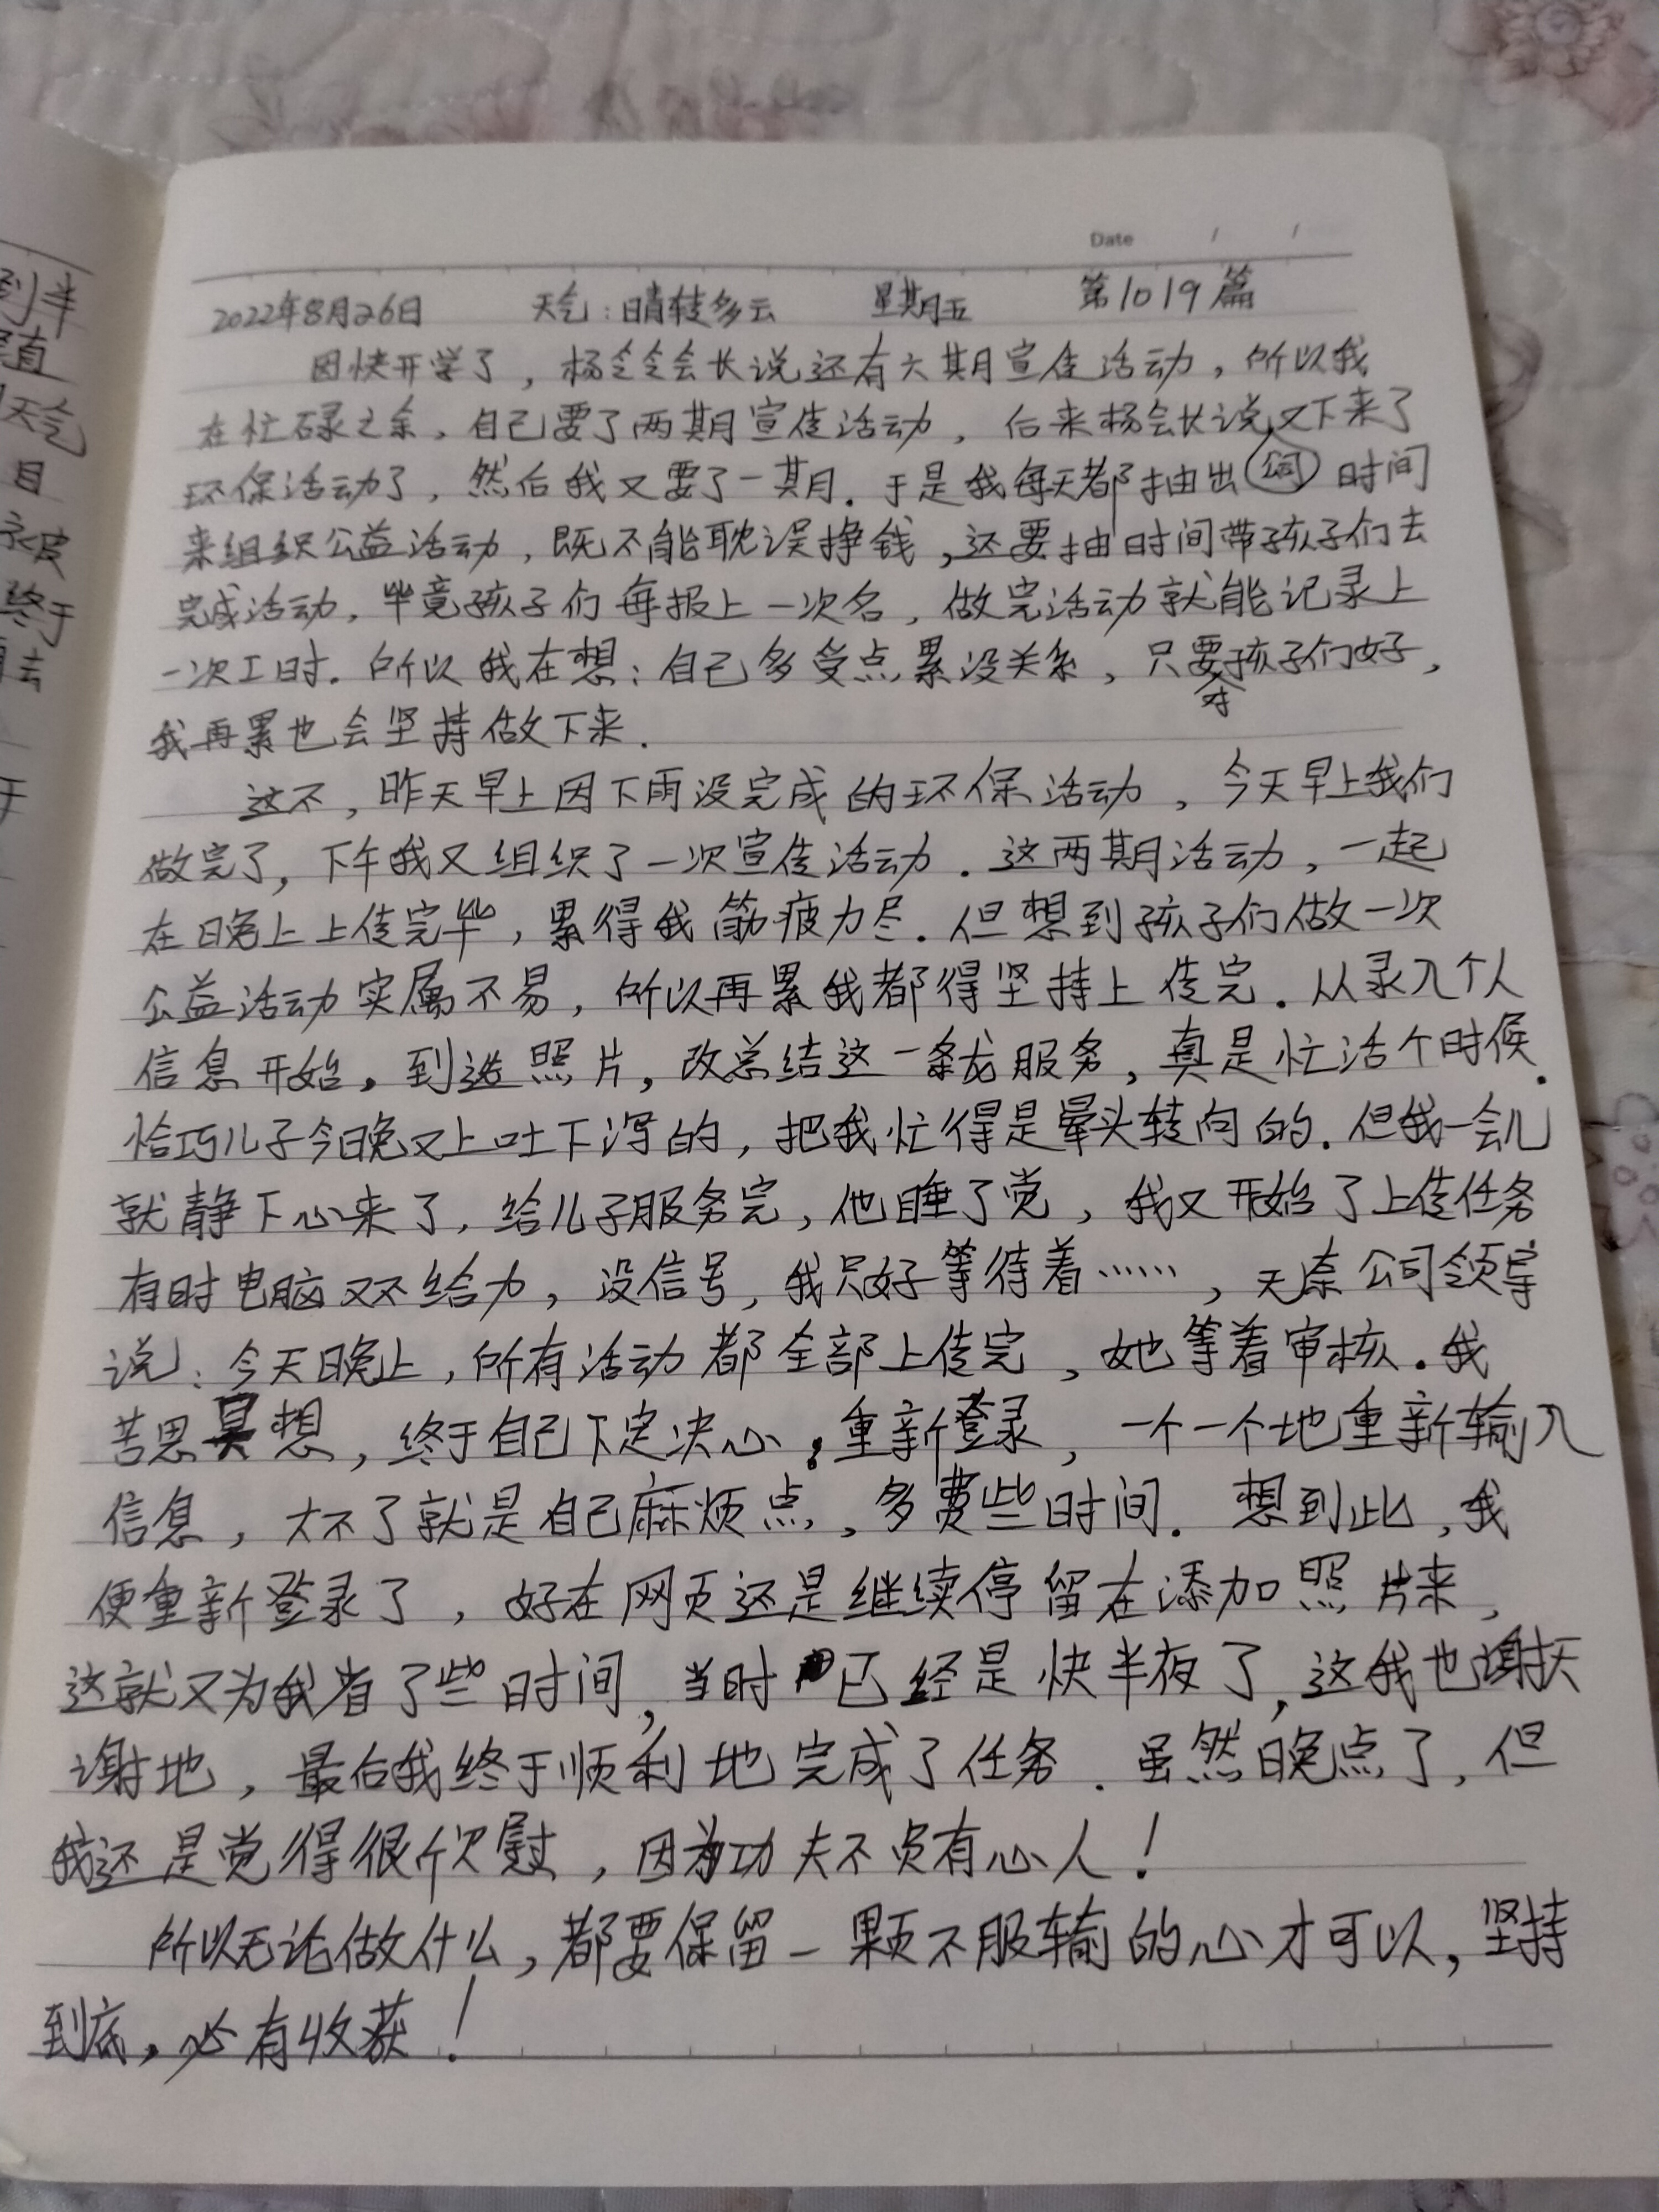 Date / /
2022年8月26日 天气：晴转多云 星期五 第1019篇
因快开学了，杨令令会长说还有六期宣传活动，所以我
在忙碌之余，自己要了两期宣传活动，后来杨会长说又下来了
环保活动了，然后我又要了一期．于是我每天都抽出 时间
来组织公益活动，既不能耽误挣钱，还要抽时间带孩子们去
完成活动，毕竟孩子们每报上一次名，做完活动就能记录上
一次工时．所以我在想：自己多受点累没关系，只要对孩子们好，
我再累也会坚持做下来．
这不，昨天早上因下雨没完成的环保活动，今天早上我们
做完了，下午我又组织了一次宣传活动．这两期活动，一起
在晚上上传完毕，累得我筋疲力尽．但想到孩子们做一次
公益活动实属不易，所以再累我都得坚持上传完．从录入个人
信息开始，到选照片，改总结这一条龙服务，真是忙活个时候．
恰巧儿子今晚又上吐下泻的，把我忙得是晕头转向的．但我一会儿
就静下心来了，给儿子服务完，他睡了觉，我又开始了上传任务
有时电脑又不给力，没信号，我只好等待着……，无奈公司领导
说：今天晚上，所有活动都全部上传完，她等着审核．我
苦思冥想，终于自己下定决心，重新登录，一个一个地重新输入
信息，大不了就是自己麻烦点，多费些时间．想到此，我
便重新登录了，好在网页还是继续停留在添加照片来，
这就又为我省了些时间，当时已经是快半夜了，这我也谢天
谢地，最后我终于顺利地完成了任务．虽然晚点了，但
我还是觉得很欣慰，因为功夫不负有心人！
所以无论做什么，都要保留一颗不服输的心才可以，坚持
到底，必有收获！